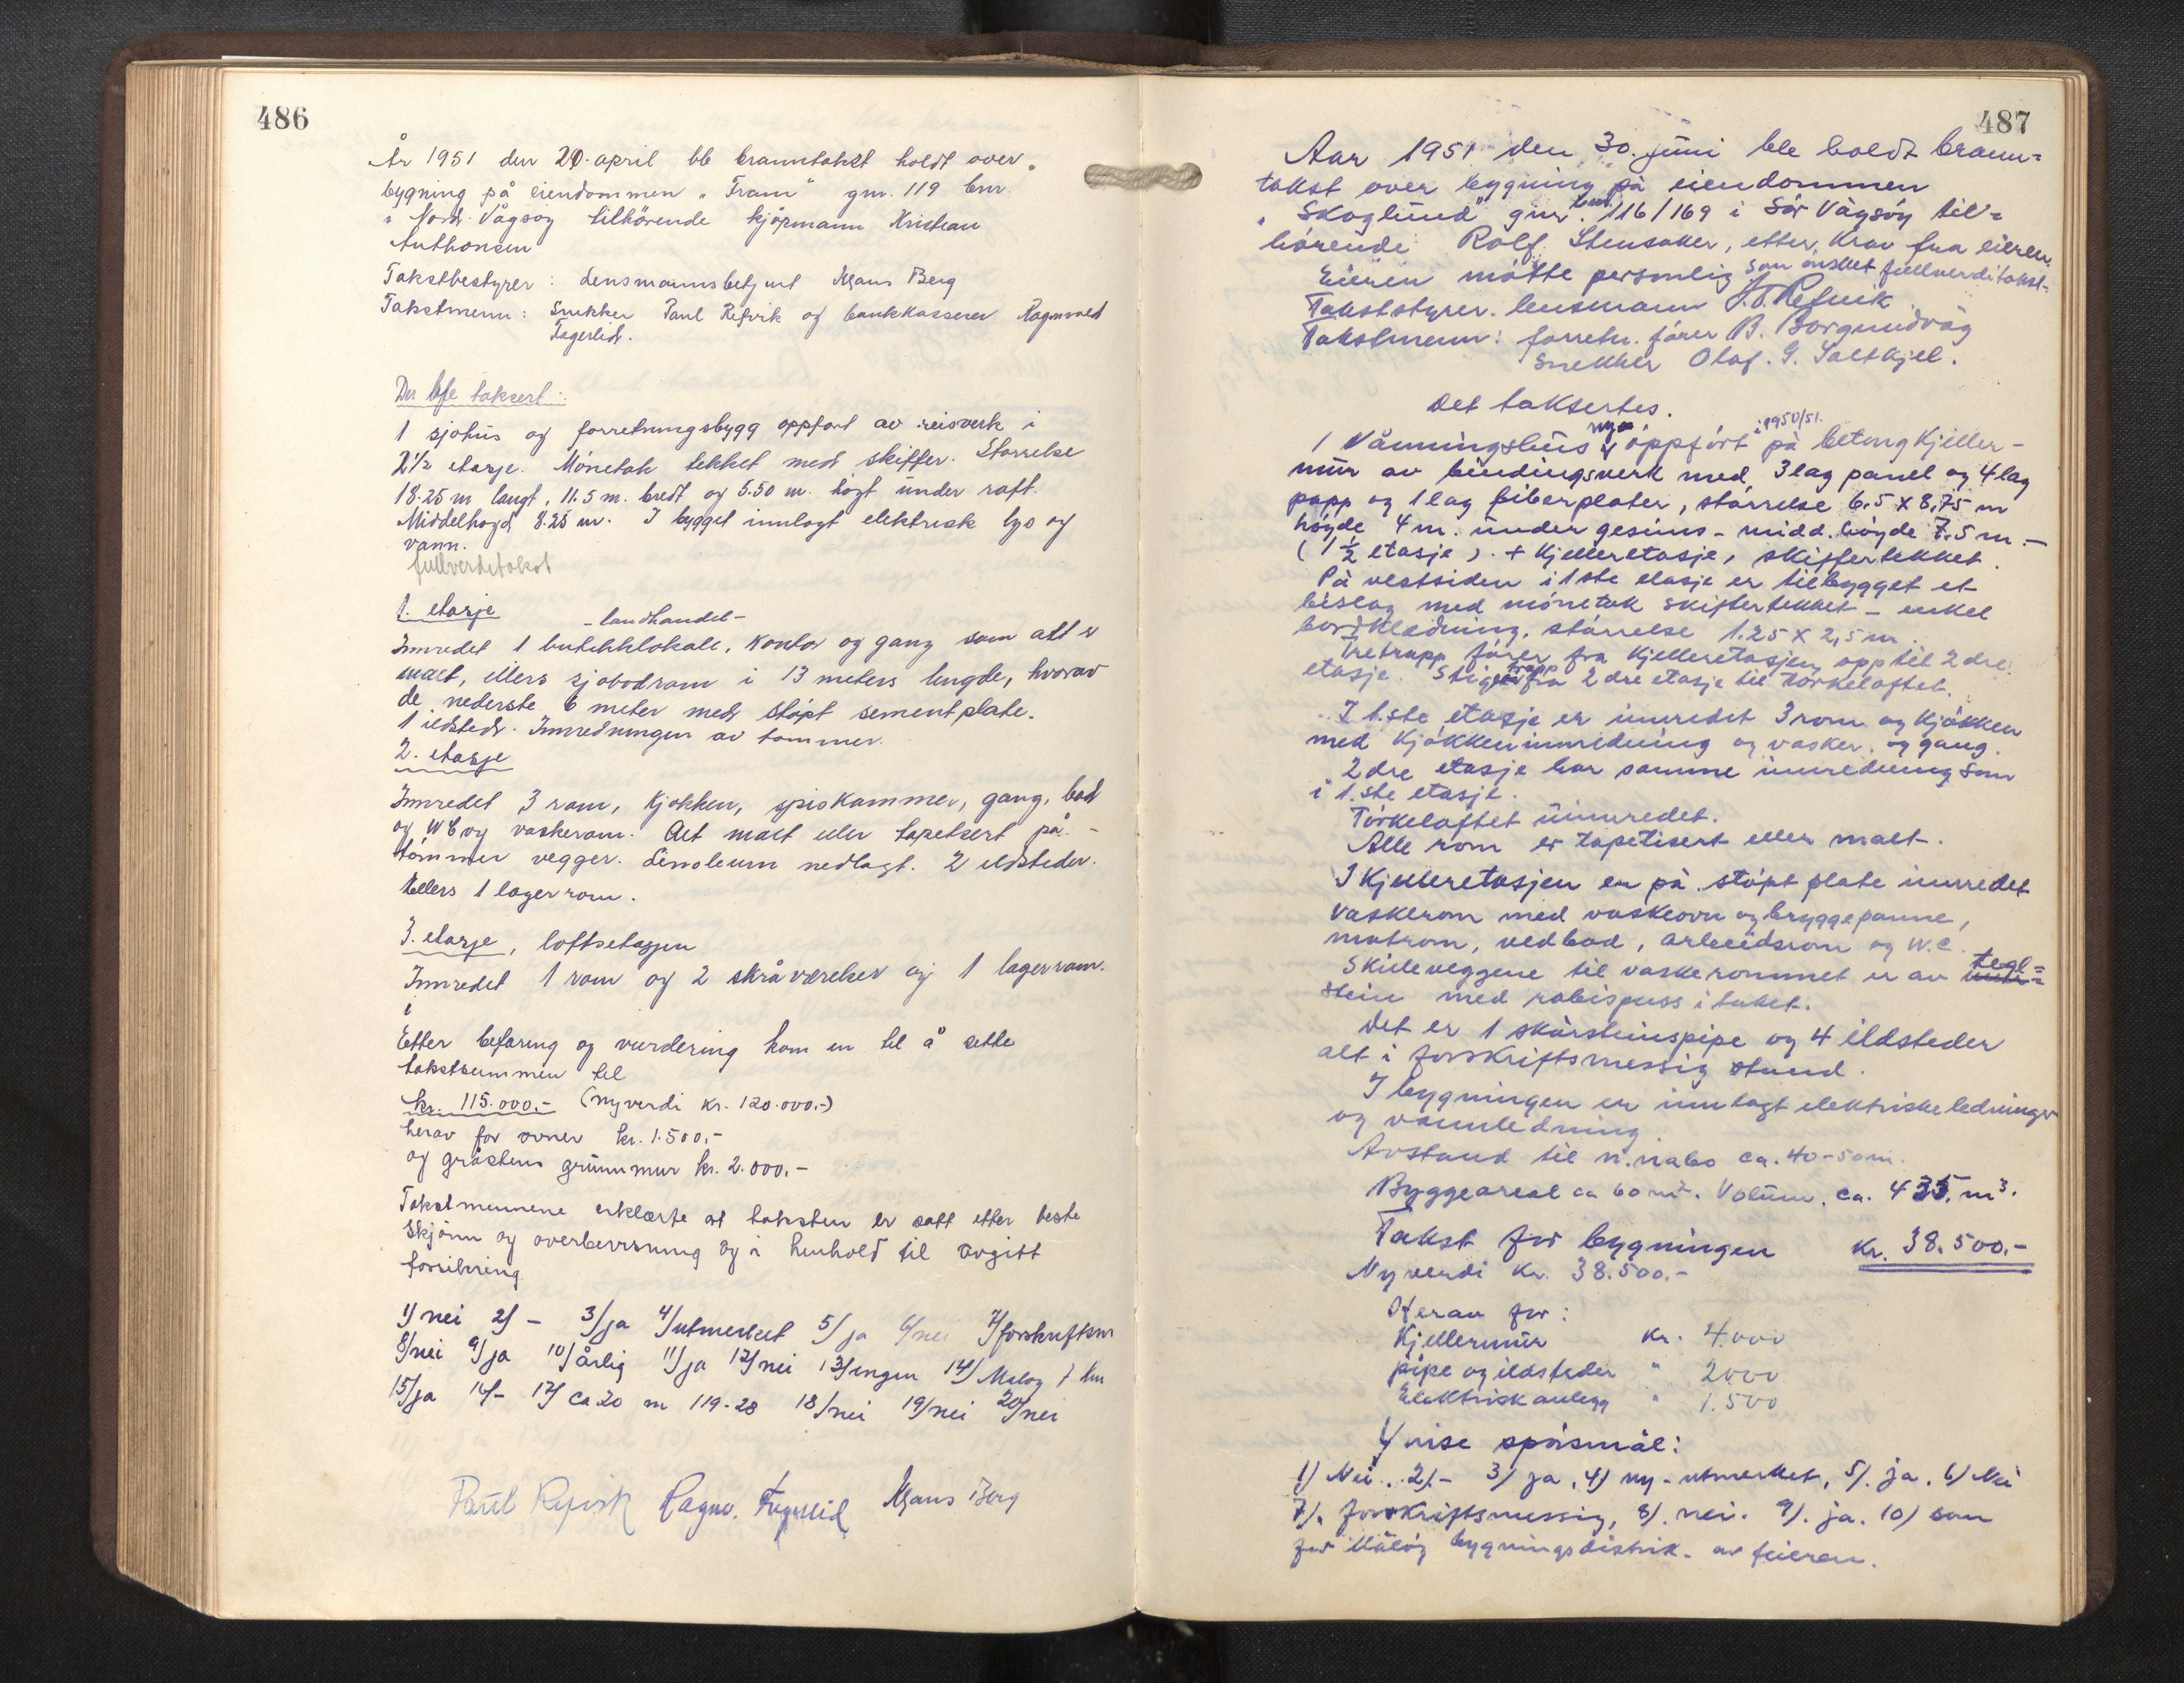 486
År 1951 den 20. april ble branntakst holdt over
bygning på eiendommen "Fram" gnr. 119 bnr.
i Nord-Vågsøy tilhörende kjöpmann Kristian
Anthonsen
Takstbestyrer: Lensmannsbetjent Klaus Berg
Takstmenn: Snekker Paul Refvik og bankkasserer Ragnvald
Fagerlid.
Der ble taksert:
1 sjøhus og forretningsbygg oppført av reisverk i
2 1/2 etasje. Mönetak tekket med skiffer. Størrelse
18.25 m langt, 11.5 m. bredt og 5.50 m. högt under raft.
Middelhøgd 8.25 m. I bygget innlagt elektrisk lys og
vann.
fullverditakst
1. etasje
- landhandel -
Innredet 1 butikklokale, kontor og gang som alt er
malt, ellers sjøbodrom i 13 meters lengde, hvorav
de nederste 6 meter med støpt sementplate.
1 ildsted. Innredningen av tømmer.
2. etasje
Innredet 3 rom, kjøkken, spiskammer, gang, bad
og WC og vaskerom. Alt malt eller tapetsert på
tömmer vegger. Linoleum nedlagt. 2 ildsteder.
Ellers 1 lagerrom.
3. etasje, loftsetasjen
Innredet 1 rom og 2 skråværelser og 1 lagerrom.
i
Etter befaring og vurdering kom en til å sette
takstsummen til
kr. 115.000.- (nyverdi kr. 120.000.-)
herav for ovner kr. 1.500.-
og gråstens grunnmur kr. 2.000.-
Takstmennene erklærte at taksten er satt etter beste
skjönn og overbevisning og i henhold til avgitt
forsikring
1/ nei 2/ - 3/ ja 4/ utmerket 5/ ja 6/ nei 7/ forskriftsm
8/ nei 9/ ja 10/ årlig 11/ ja 12/ nei 13/ ingen 14/ Måløy 7 km
15/ ja 16/ - 17/ ca 20 m 119-28 18/ nei 19/ nei 20/ nei
Paul Refvik Ragnv. Fagerlid Klaus Berg
487
Aar 1951 den 30. juni ble holdt brann=
takst over bygning på eiendommen
"Skoglund" gnr. bnr. 116/169 i Sör Vågsöy til=
hörende Rolf Stensaker, etter krav fra eieren
som önsket fullverditakst.
Eieren mötte personlig
Takststyrer. lensmann J. T. Refvik
Takstmenn: forretn. förer B. Borgundvåg
snekker Olaf. G. Saltkjel.
Det taksertes.
1 Våningshus nye oppfört i 1950/51. på betong kjeller-
mur av bindingsverk med 3 lag panel og 4 lag
papp og 1 lag fiberplater, störrelse 6.5 x 8,75 m
höyde 4 m. under gesims - midd. höyde 7.5 m. -
(1 1/2 etasje). + kjelleretasje, skiffertekket.
På vestsiden i 1ste etasje er tilbygget et
bislag med mönetak skiffertekket - enkel
bordkledning. störrelse 1.25 x 2,5 m.
Tretrapp förer fra kjelleretasjen opp til 2dre
etasje. Stigetrapp fra 2dre etasje til törkeloftet.
I 1.ste etasje er innredet 3 rom og kjökken
med kjökkeninnredning og vasker. og gang.
2dre etasje har samme innredning som
i 1.ste etasje.
Törkeloftet uinnredet.
Alle rom er tapetisert eller malt.
I kjelleretasjen er på stöpt plate innredet
vaskerom med vaskeovn og bryggepanne,
matrom, vedbod, arbeidsrom og W.C.
Skilleveggene til vaskerommet er av tegl=
stein med rabispuss i taket.
Det er 1 skorsteinspipe og 4 ildsteder
alt i forskriftsmessig stand.
I bygningen er innlagt elektriske ledninger
og vannledning.
Avstand til n. nabo ca. 40-50 m.
Byggeareal ca 60 m². Volum. ca. 435 m³.
Takst for bygningen kr. 38.500.-
Nyverdi kr. 38.500.-
Herav for:
Kjellermur kr. 4.000
pipe og ildsteder " 2000
Elektrisk anlegg " 1.500
Ymse spörsmål:
1) Nei. 2/ - 3/ ja, 4) ny - utmerket, 5/. ja. 6) Nei
7/. forskriftsmessig, 8/. nei. 9/. ja. 10) som
for Måløy bygningsdistrik. av feieren.